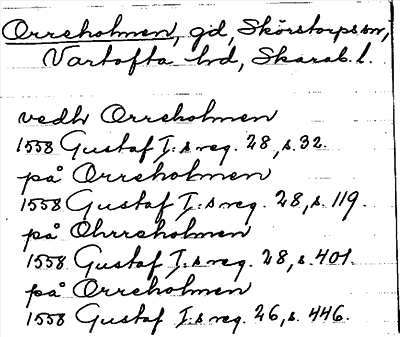 Orreholmen, gd, Skörstorps sn,
Vartofta hd, Skarab. l.
vedh Orreholmen
1558 Gustaf I:s reg. 28, s. 32.
på Orreholmen
1558 Gustaf I:s reg. 28, s. 119.
på Ohrreholmen
1558 Gustaf I:s reg. 28, s. 401.
på Orreholmen
1558 Gustaf I:s reg. 26, s. 446.